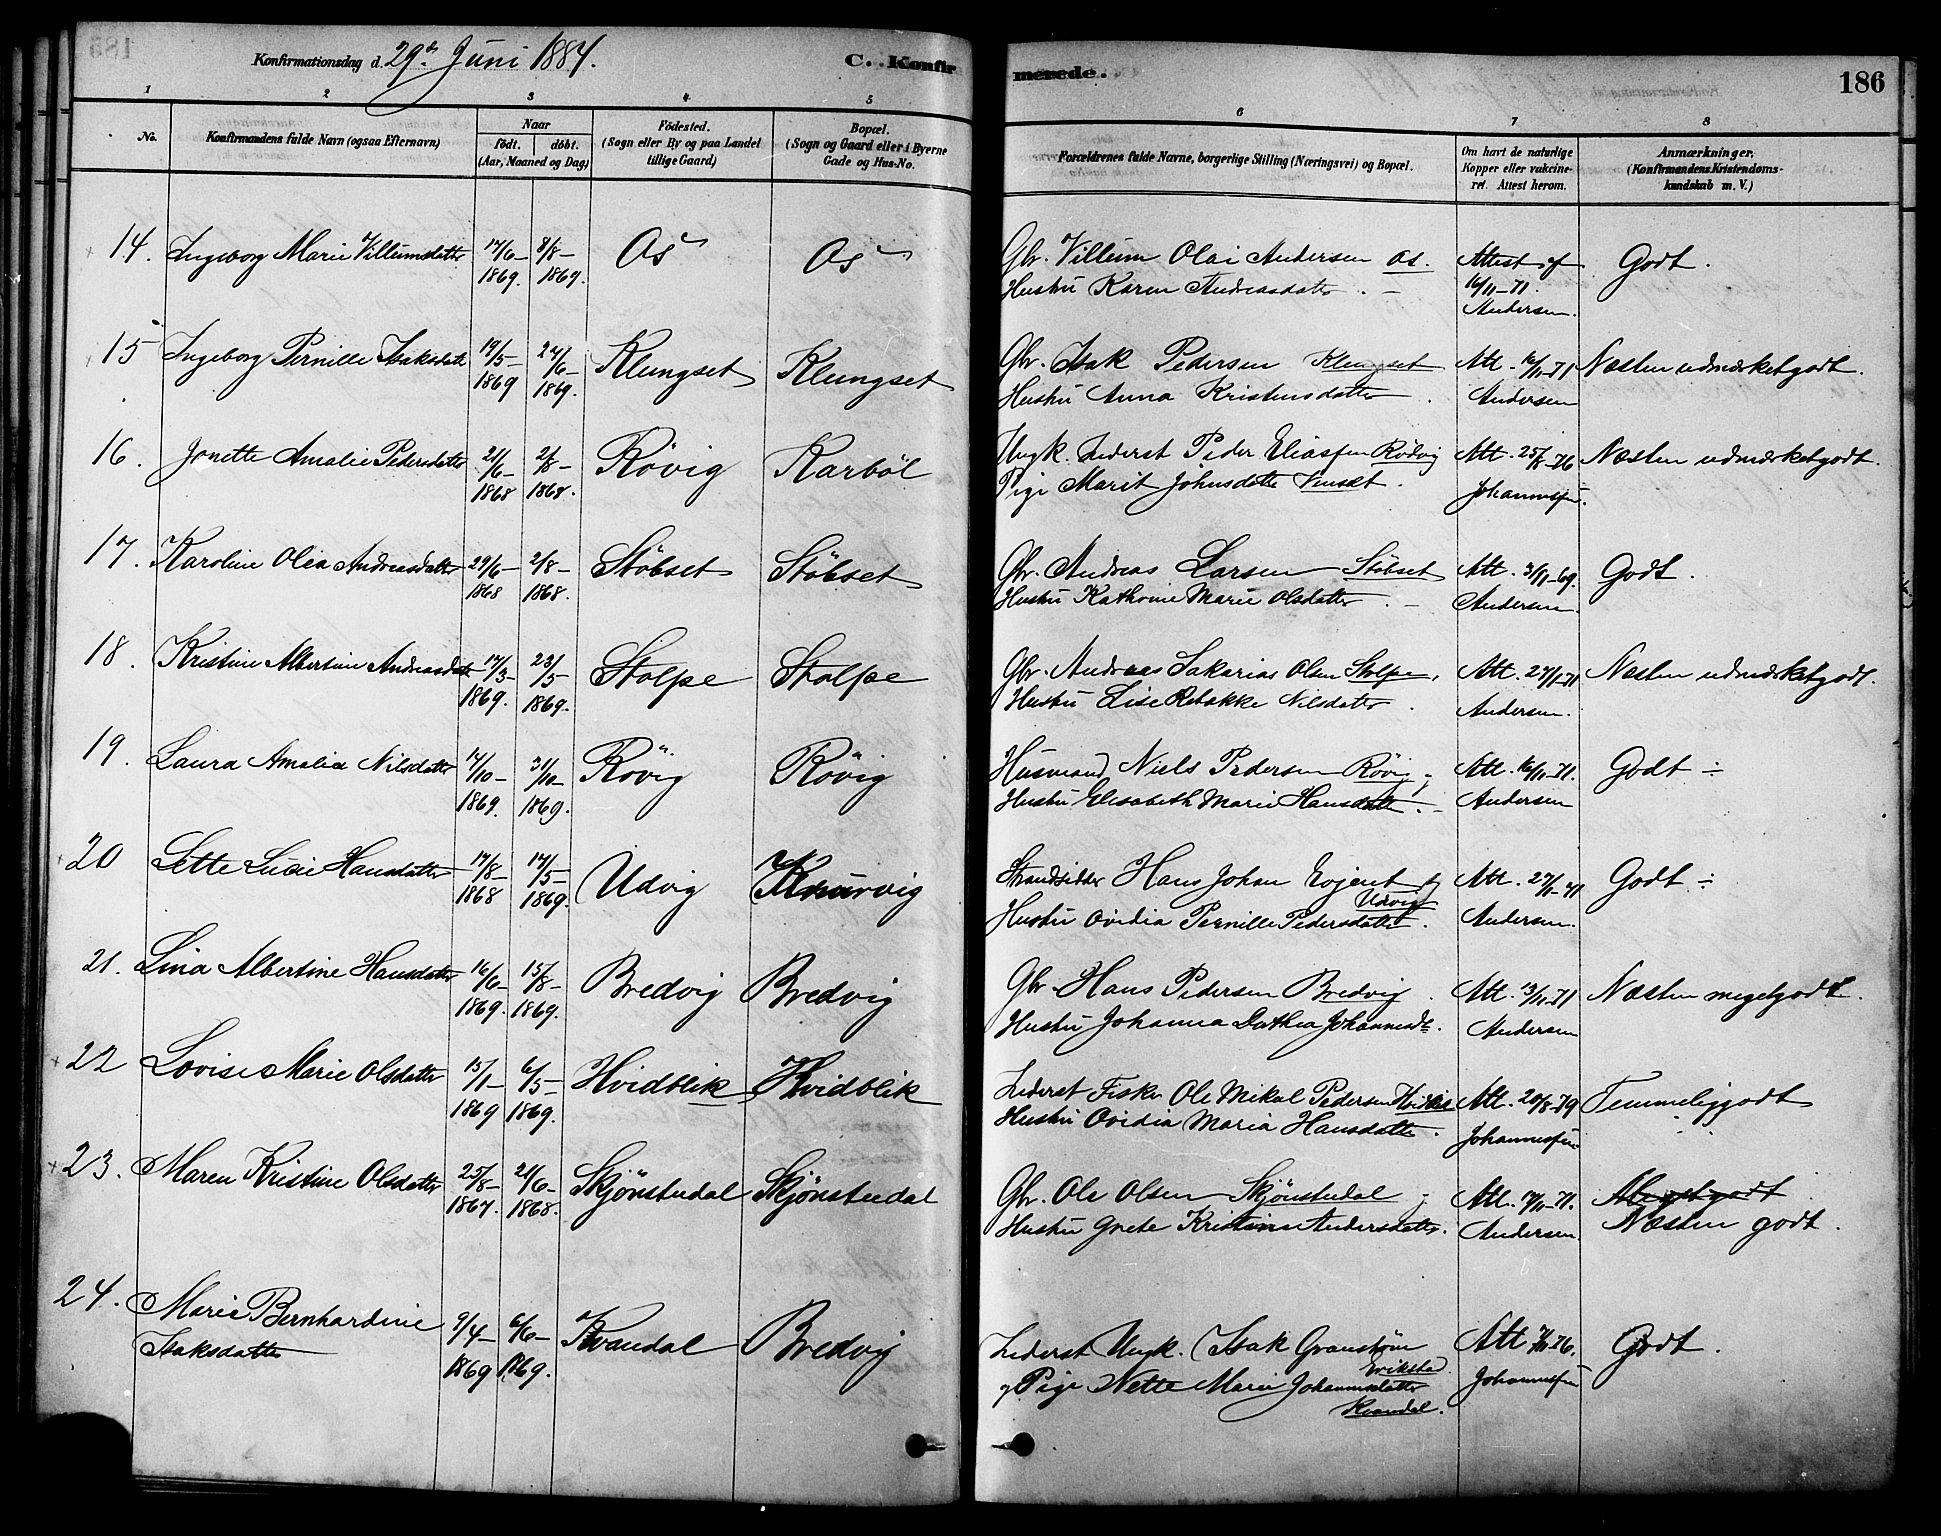 Konfirmationsdag d. 29de Juni 1884.
C. Konfirmerede.
186
1 2 3 4 5 6 7 8
No.
Konfirmandens fulde Navn (ogsaa Efternavn)
Naar
født. døbt.
(Aar, Maaned og Dag)
Fødested.
(Sogn eller By og paa Landet
tillige Gaard)
Bopæl.
(Sogn og Gaard eller i Byerne
Gade og Hus-No.
Forældrenes fulde Navne, borgerlige Stilling (Næringsvei) og Bopæl.
Om havt de naturlige
Kopper eller vakcine-
ret. Attest herom.
Anmærkninger.
(Konfirmandens Kristendoms-
kundskab m. V.)
14. Ingeborg Marie Villumsdatter 17/6- 8/8- Os Os Gbr. Villum Olai Andersen Os. Attest af Godt.
1869. 1869. Hustru Karen Andreasdatter. 16/11-71
Andersen.
15 Ingeborg Pernille Isaksdatter 19/5- 27/6- Klungset Klungset Gbr. Isak Pedersen Klungset Att. 16/11-71 Næsten udmærketgodt.
1869 1869. Hustru Anna Kristensdatter. Andersen
16. Jonette Amalie Pedersdatter 21/6- 2/8- Røvig Karbøl Ungk. Lederst Peder Eliassen Røvig Att. 25/8-76 Næsten udmærketgodt.
1868 1868. Pige Marit Johnsdatter Venset. Johannessen.
17. Karoline Olea Andreasdatter 29/6- 2/8- Støbset Støbset Gbr. Andreas Larsen Støbset Att. 3/11-69. Godt.
1868 1868. Hustru Kathrine Marie Olsdatter. Andersen
18. Kristine Albertine Andreasdatter 17/3- 23/5- Stolpe Stolpe Gbr. Andreas Sakarias Olsen Stolpe, Att. 27/11-71 Næsten udmærketgodt.
1869. 1869. Hustru Lise Rebakke Nilsdatter. Andersen.
19. Laura Amalia Nilsdatter 17/10- 31/10- Røvig Røvig Husmand Niels Pedersen Røvig Att. 16/11-71. Godt ÷
1869. 1869. Hustru Elisabeth Marie Hansdatter. Andersen
20 Lette Lucie Hansdatter 17/8- 17/5- Udvig Knurvig Strandsidder Hans Johan Att. 27/11-71 Godt ÷
1868 1869. Udvig
Hustru Ovidia Pernille Pedersdatter. Andersen.
21. Lina Albertine Hansdatter 16/6- 15/8- Bredvig Bredvig Gbr. Hans Pedersen Bredvig. Att. 13/11-71 Næsten megetgodt.
1869. 1869. Hustru Johanna Dorthea Johannesd. Andersen
22 Lovise Marie Olsdatter 15/1- 6/5- Hvidblik Hvidblik Lederst Fisker Ole Mikal Pedersen Hvidblik Att. 20/8-79 Temmeliggodt
1869 1869. Hustru Ovidia Maria Hansdatter. Johannessen
23. Maren Kristine Olsdatter 25/8- 21/6- Skjønstudal Skjønstudal Gbr. Ole Olsen Skjønstudal Att. 17/11-71. Megetgodt
1867. 1868. Hustru Grete Kristina Andersdatter. Andersen Næsten godt.
24. Marie Bernhardine 9/4- 6/6- Kvandal Bredvig Lederst Ungk. Isak Granstrøm Att Godt.
Isaksdatter 1869 1869. Erikstad
og Pige Nette Marie Johannesdatter Johannessen
Kvandal.